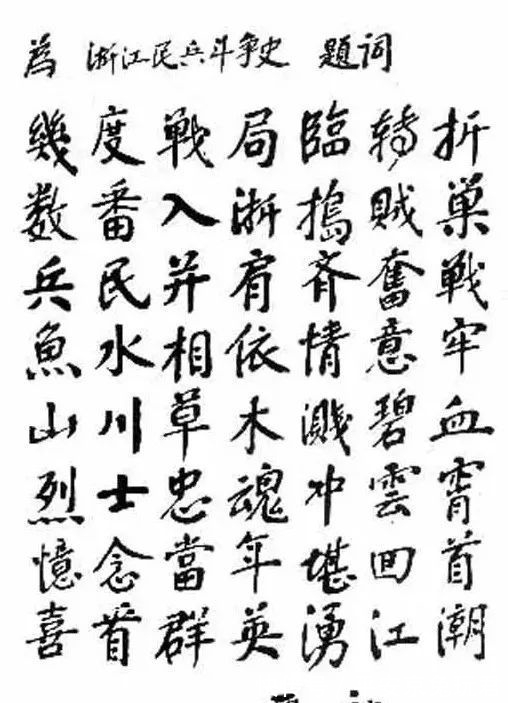 為 浙江民兵斗争史 題词
幾度戦局臨轉折
数番入浙搗賊巢
兵民并肩斉奮戦
魚水相依情意牢
山川草木溅碧血
烈士忠魂冲雲霄
憶念當年堪回首
喜看群英湧江潮